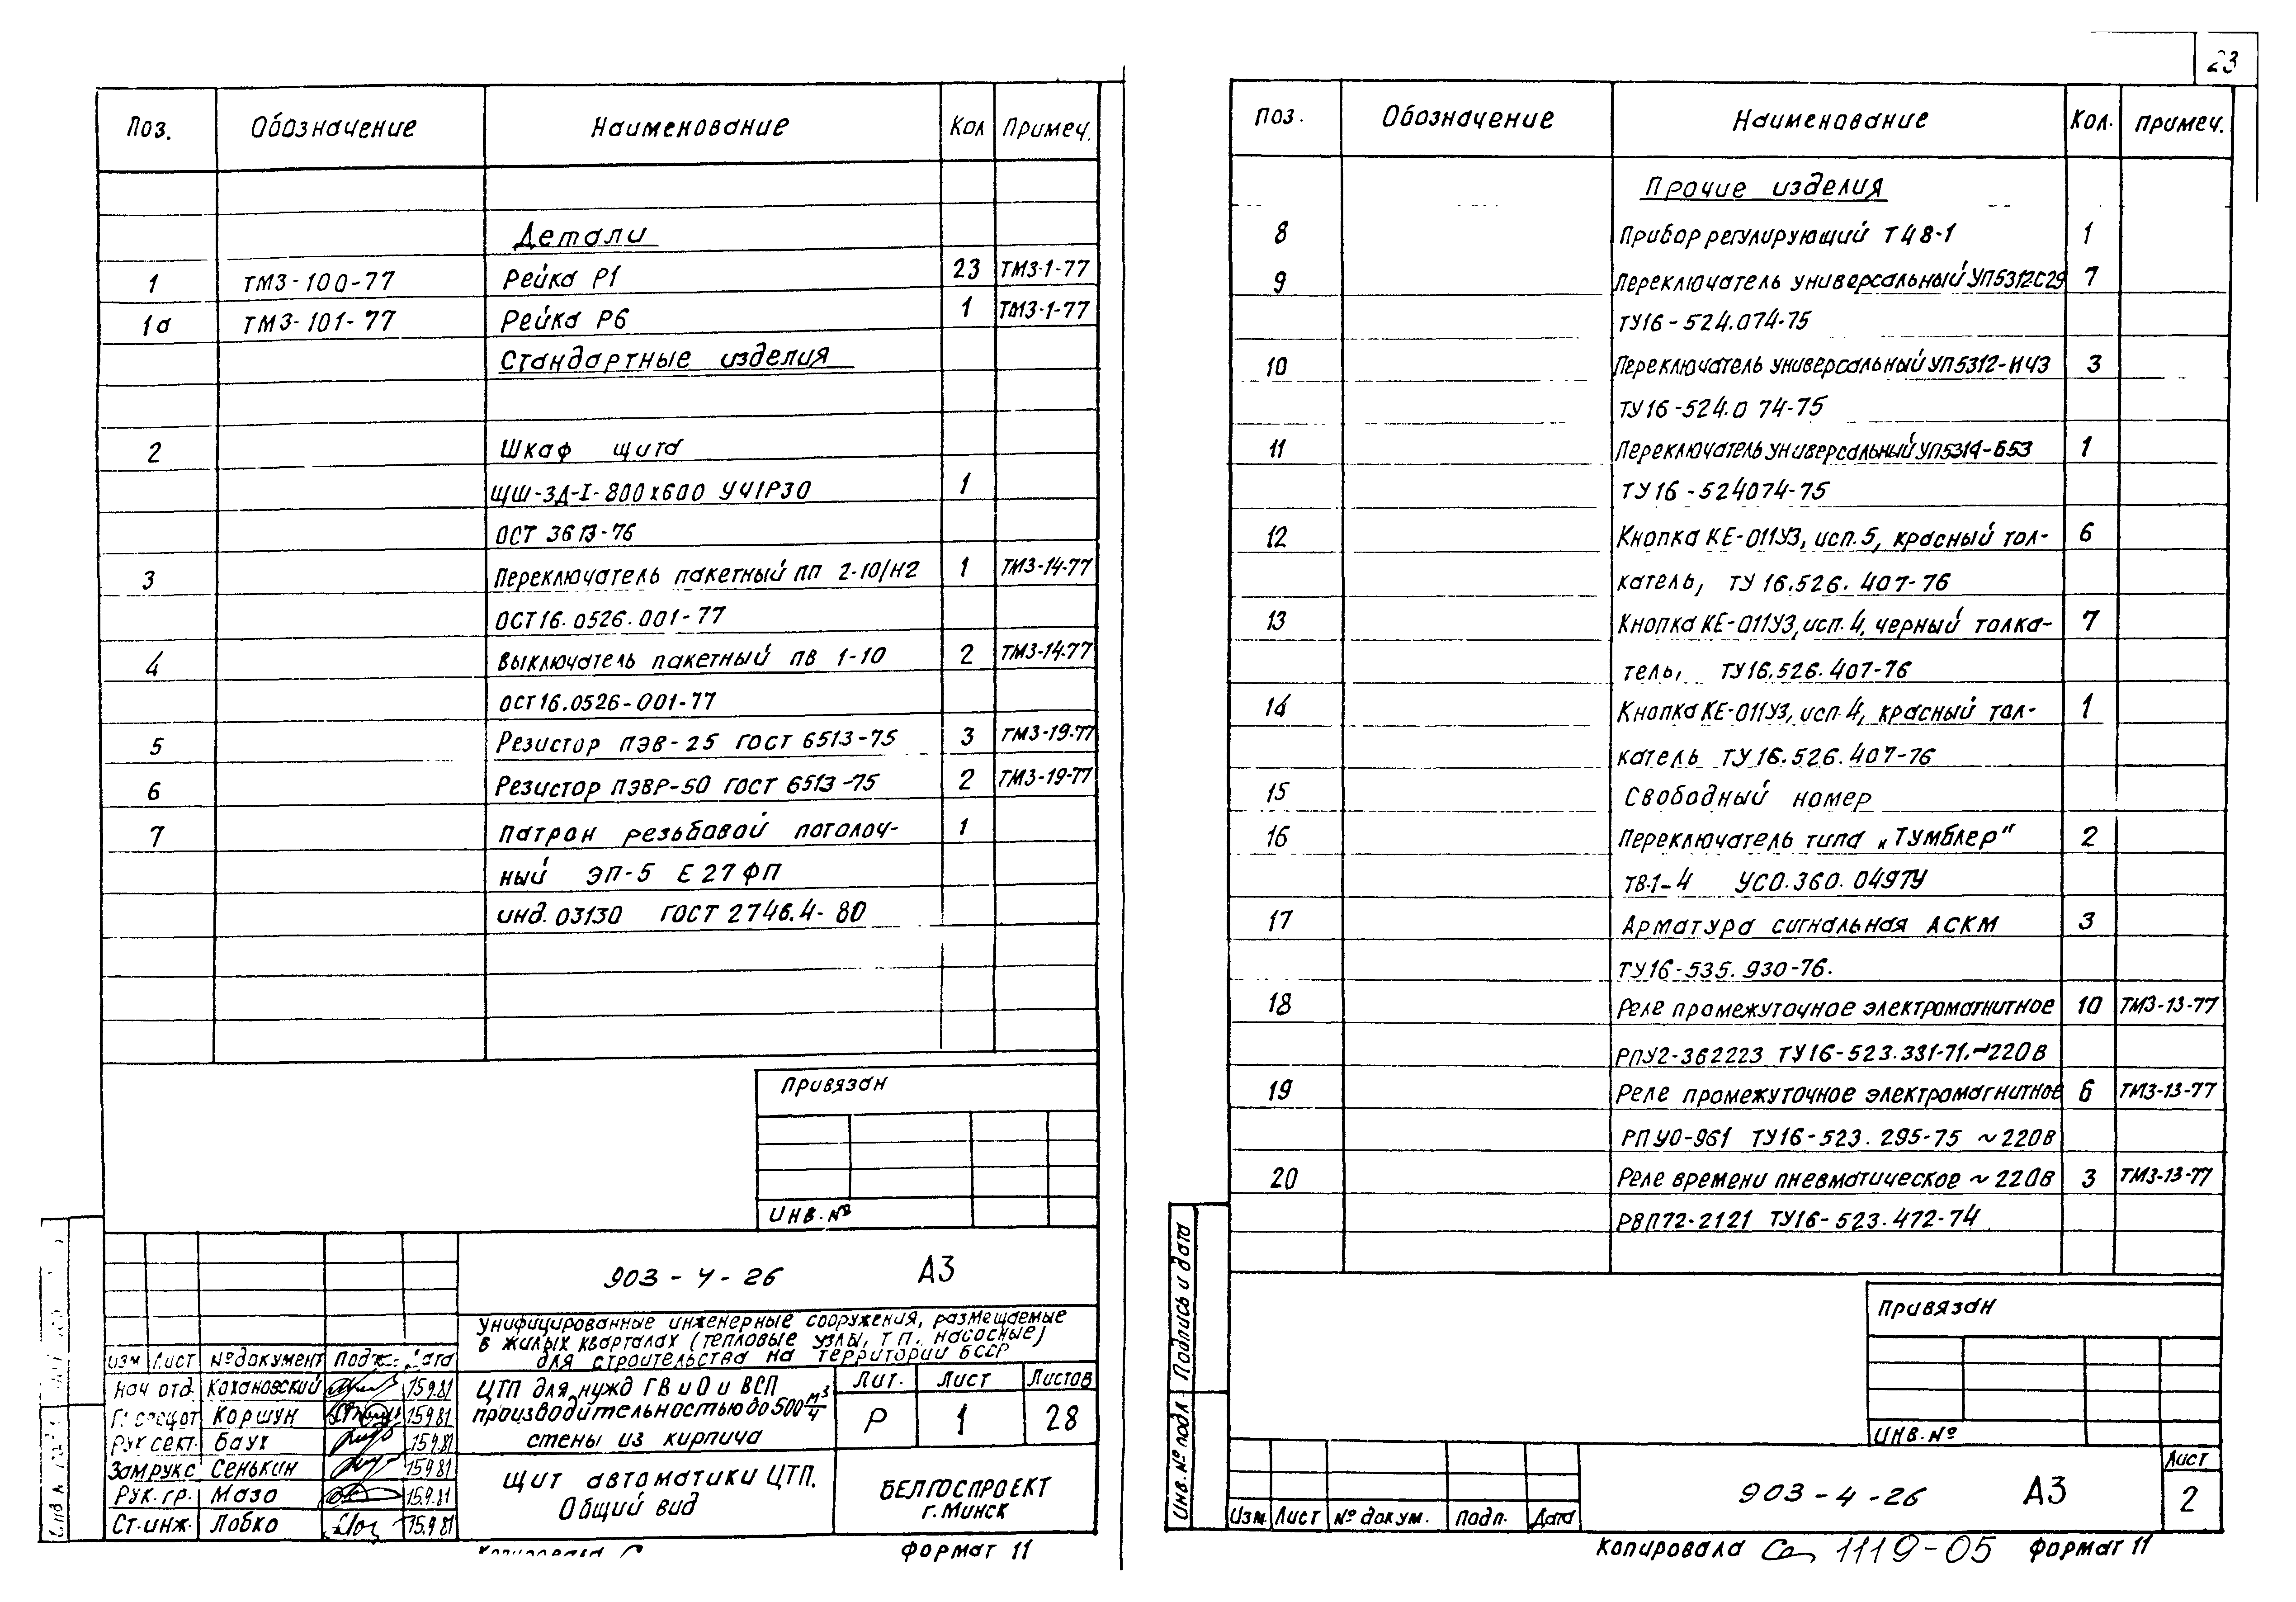 Поз. Обозначение Наименование Кол Примеч.
Детали
1 ТМ3-100-77 Рейка Р1 23 ТМ3-1-77
1а ТМ3-101-77 Рейка Р6 1 ТМ3-1-77
Стандартные изделия
2 Шкаф щита
ЩШ-ЗД-I-800х600 УЧIР30 1
ОСТ 3613-76
3 Переключатель пакетный ПП 2-10/Н2 1 ТМ3-14-77
ОСТ16.0526.001-77
4 Выключатель пакетный ПВ 1-10 2 ТМ3-14-77
ОСТ16.0526-001-77
5 Резистор ПЭВ-25 ГОСТ 6513-75 3 ТМ3-19-77
6 Резистор ПЭВР-50 ГОСТ 6513-75 2 ТМ3-19-77
7 Патрон резьбавой потолоч- 1
ный ЭП-5 Е27ФП
инд. 03130 ГОСТ 2746.4-80
Привязан
Инв. №
903-4-26 А3
Унифицированные инженерные сооружения, размещаемые
в жилых кварталах (тепловые узлы, т.п. насосные)
для строительства на территории БССР
Изм Лист № документ Дата
Нач отд. Кохановский 15.9.81
Коршун 15.9.81
Рук сект. Баух 15.9.81
Зам рук с Сенькин 15.9.81
Рук. гр. Мазо 15.9.81
Ст. инж. Лобко 15.9.81
ЦТП для нужд ГВ и О и ВСП
производительностью до 500 м³/ч
стены из кирпича
Лит. Лист Листов
Р 1 28
Щит автоматики ЦТП.
Общий вид
БЕЛГОСПРОЕКТ
г. Минск
Копировала Формат 11
23
Поз. Обозначение Наименование Кол. Примеч.
Прочие изделия
8 Прибор регулирующий Т48-1 1
9 Переключатель универсальный УП5312-С29 7
ТУ16-524.074-75
10 Переключатель универсальный УП5312-Н43 3
ТУ16-524.074-75
11 Переключатель универсальный УП5314-Б53 1
ТУ16-524074-75
12 Кнопка КЕ-011У3, исп. 5, красный тол- 6
катель, ТУ 16.526.407-76
13 Кнопка КЕ-011У3, исп. 4, черный толка- 7
тель, ТУ16.526.407-76
14 Кнопка КЕ-011У3, исп. 4, красный тол- 1
катель ТУ16.526.407-76
15 Свободный номер
16 Переключатель типа „Тумблер" 2
ТВ1-4 УСО.360.049ТУ
17 Арматура сигнальная АСКМ 3
ТУ16-535.930-76.
18 Реле промежуточное электромагнитное 10 ТМ3-13-77
РПУ2-362223 ТУ16-523.331-71.~220В
19 Реле промежуточное электромагнитное 6 ТМ3-13-77
РПУ0-961 ТУ16-523.295-75 ~220В
20 Реле времени пневматическое ~220В 3 ТМ3-13-77
РВП72-2121 ТУ16-523.472-74
Привязан
Инв. №
Инв. № подл. Подпись и дата
Изм. Лист № докум. Подп. Дата
903-4-26 А3
Лист
2
Копировала 1119-05 Формат 11